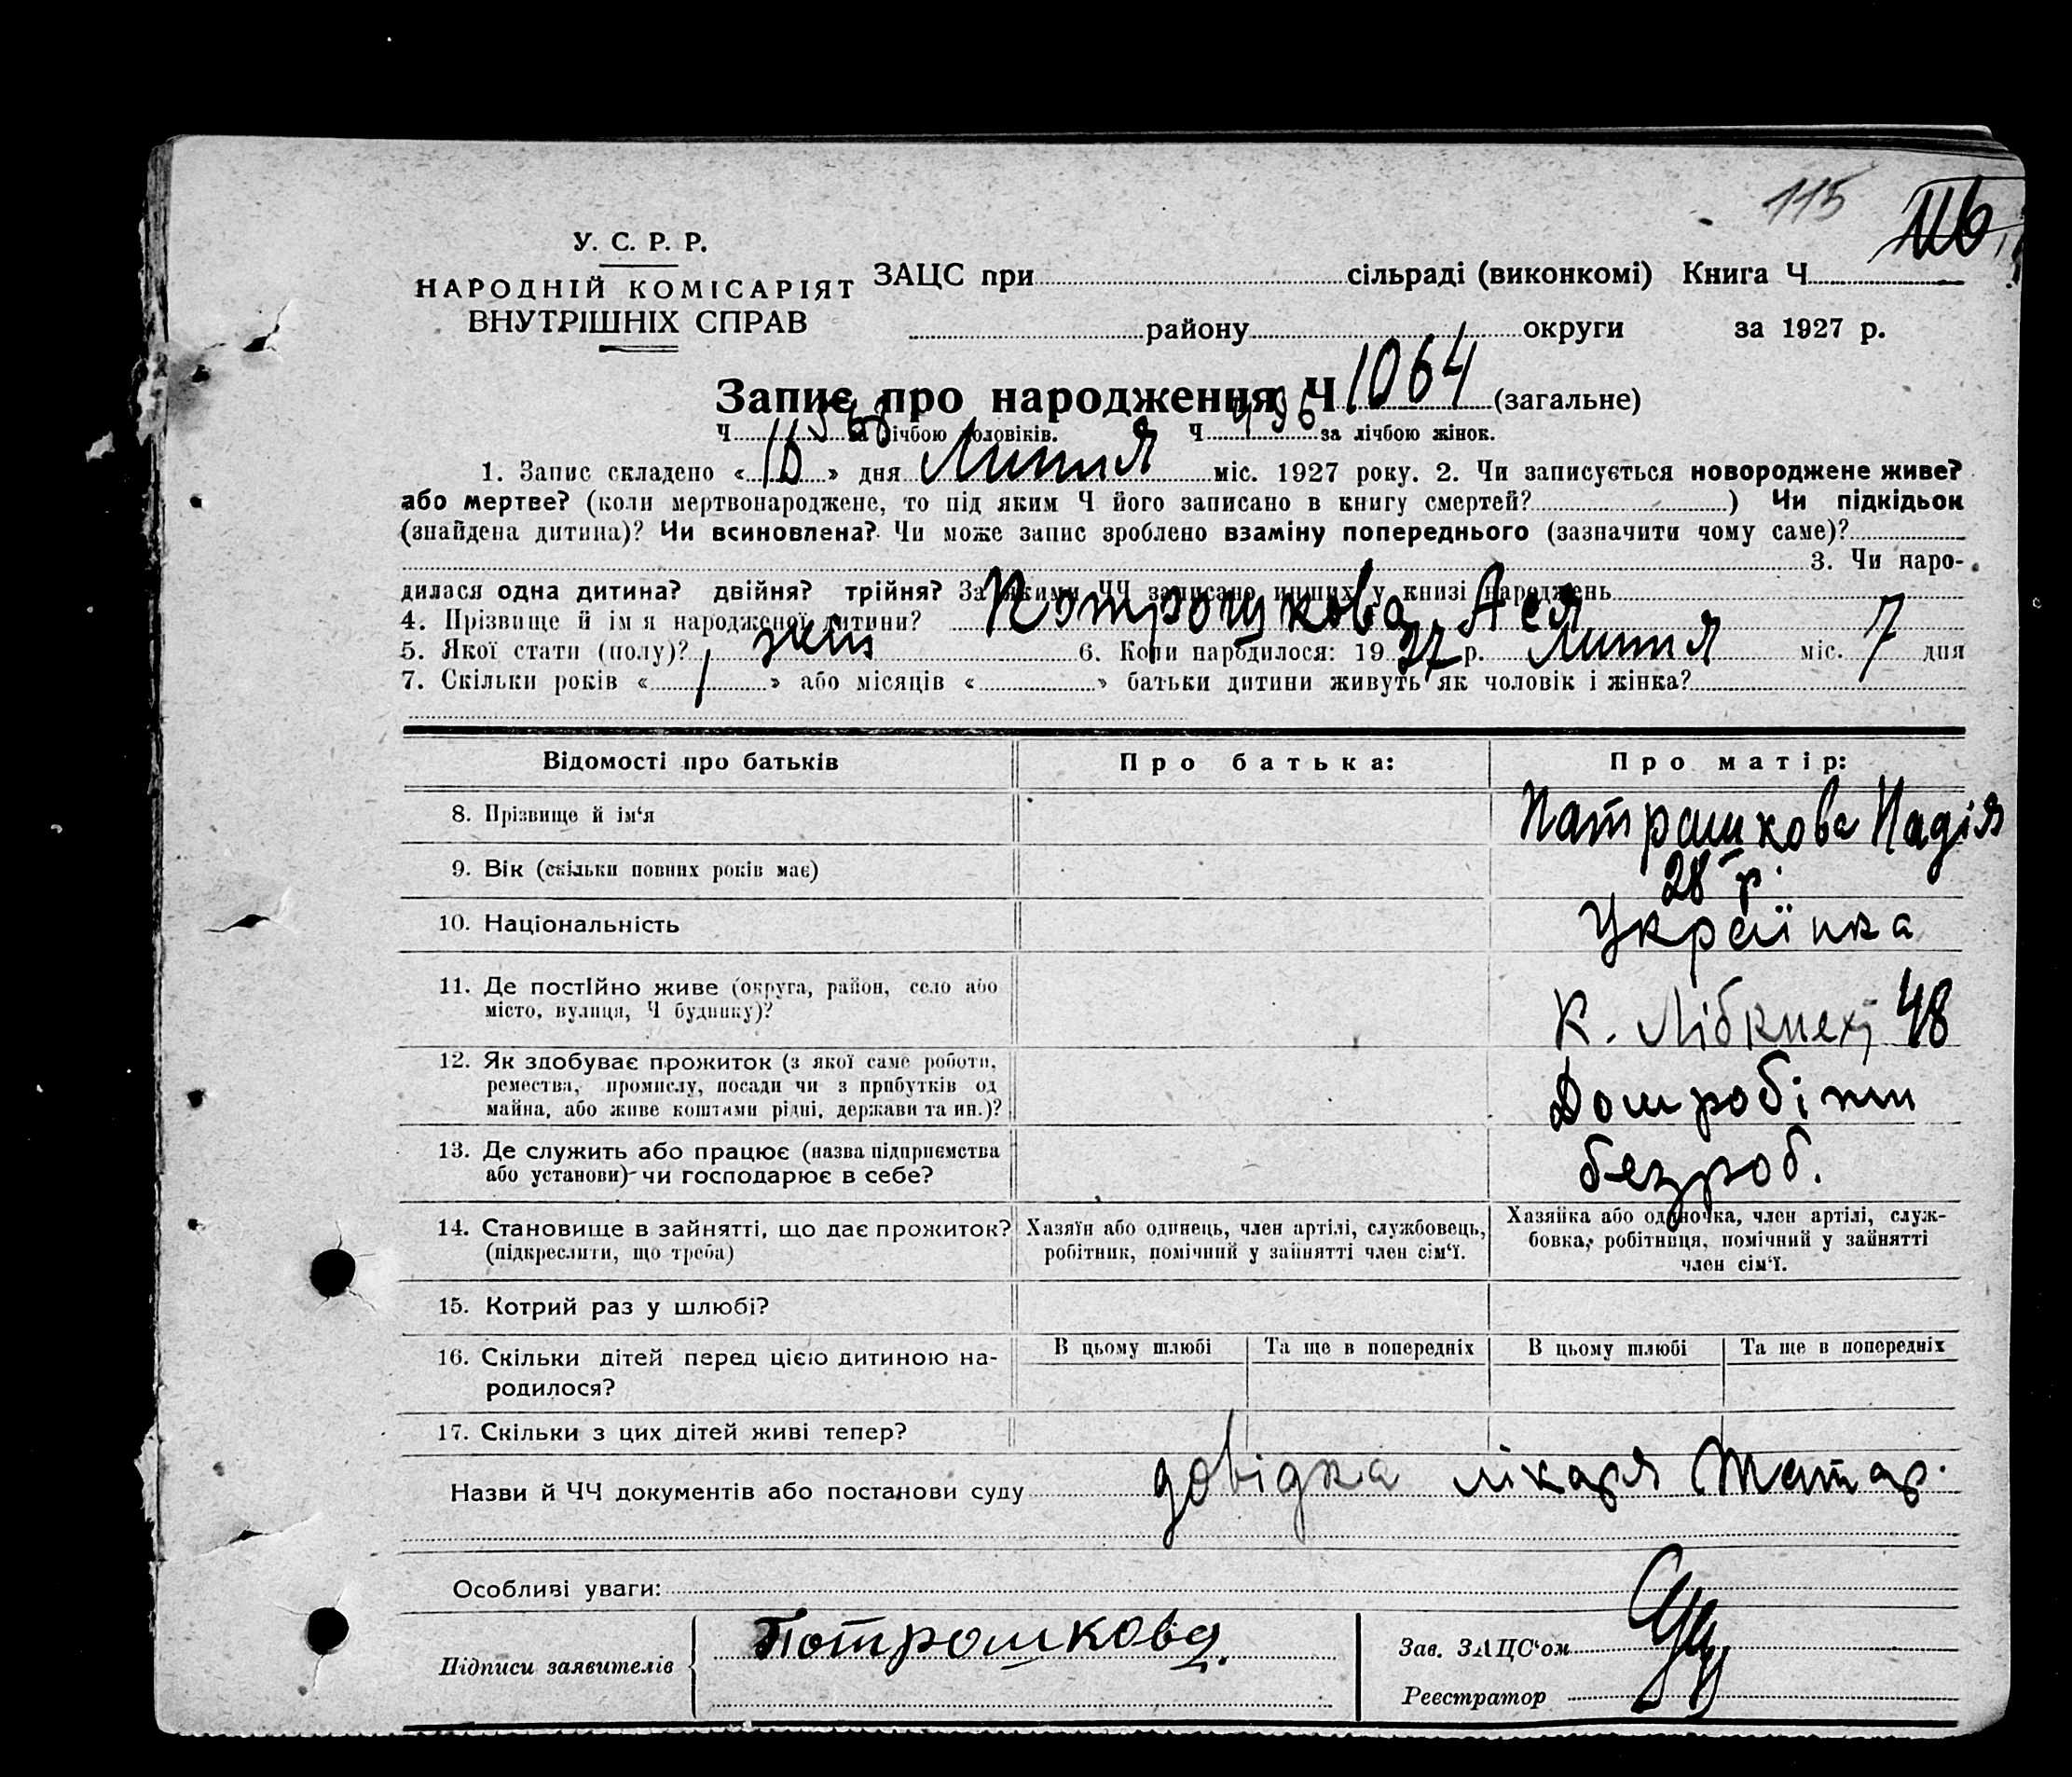 115
116
У. С. Р. Р.
НАРОДНІЙ КОМІСАРІЯТ
ВНУТРІШНІХ СПРАВ
ЗАЦС при сільраді (виконкомі) Книга Ч
району округи за 1927 р.
Запис про народження Ч 1064 (загальне)
Ч за лічбою чоловіків. Ч 496 за лічбою жінок.
1. Запис складено «16» дня Липня міс. 1927 року. 2. Чи записується новороджене живе?
або мертве? (коли мертвонароджене, то під яким Ч його записано в книгу смертей?) Чи підкідьок
(знайдена дитина)? Чи всиновлена? Чи може запис зроблено взаміну попереднього (зазначити чому саме)?
3. Чи наро-
дилася одна дитина? двійня? трійня? За якими ЧЧ записано инших у книзі народжень
4. Прізвище й ім я народженої дитини? Потрошкова Ася
5. Якої стати (полу)? жін 6. Коли народилося: 1927 р. Липня міс. 7 дня
7. Скільки років «» або місяців «» батьки дитини живуть як чоловік і жінка?
Відомості про батьків Про батька: Про матір:
8. Прізвище й ім'я Патрашкова Надія
9. Вік (скільки повних років має) 28 р.
10. Національність Українка
11. Де постійно живе (округа, район, село або
місто, вулиця, Ч будинку)? К. Лібкнех, 48
12. Як здобуває прожиток (з якої саме роботи,
ремества, промислу, посади чи з прибутків од
майна, або живе коштами рідні, держави та ин.)? Домробітн
13. Де служить або працює (назва підприємства
або установи) чи господарює в себе? безроб.
14. Становище в зайнятті, що дає прожиток?
(підкреслити, що треба)
Хазяїн або одинець, член артілі, службовець,
робітник, помічний у зайнятті член сім'ї.
Хазяйка або одиночка, член артілі, служ-
бовка, робітниця, помічний у зайнятті
член сім'ї.
15. Котрий раз у шлюбі?
16. Скільки дітей перед цією дитиною на-
родилося?
В цьому шлюбі Та ще в попередніх В цьому шлюбі Та ще в попередніх
17. Скільки з цих дітей живі тепер?
Назви й ЧЧ документів або постанови суду довідка лікаря
Особливі уваги:
Підписи заявителів Потрошкова.
Зав. ЗАЦС'ом
Реєстратор